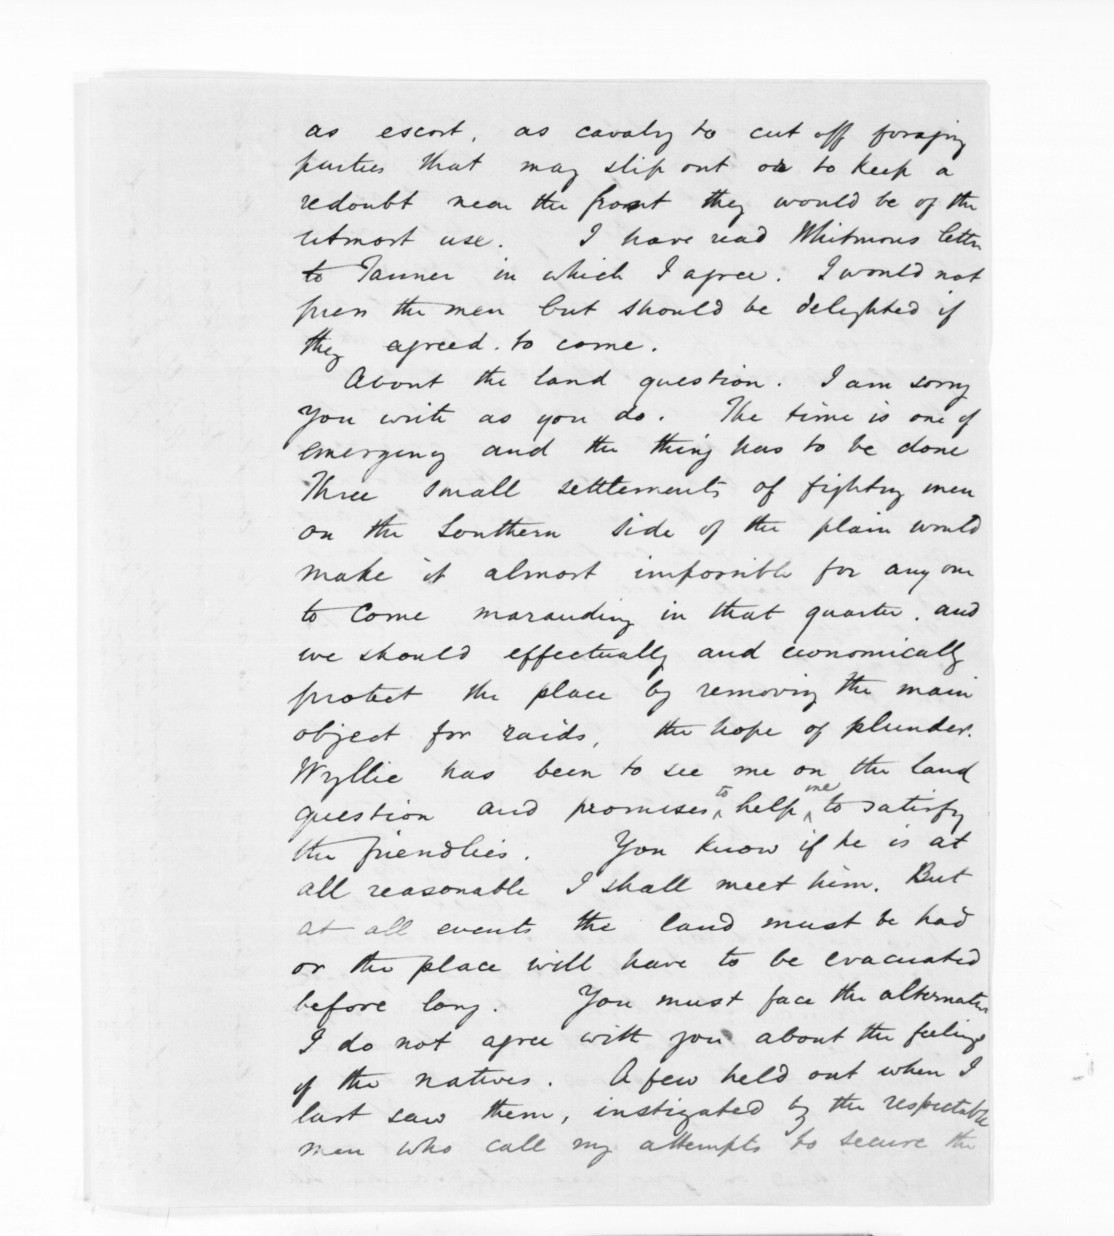 as escort, as cavalry to cut off foraging
parties that may slip out or to keep a
redoubt near the front they would be of the
utmost use. I have read Whitmores letter
to Tanner in which I agree. I would not
press the men but should be delighted if
they agreed to come.
About the land question. I am sorry
you write as you do. The time is one of
emergency and the thing has to be done
Three small settlements of fighting men
on the Southern side of the plain would
make it almost impossible for any one
to come marauding in that quarter. and
we should effectually and economically
protect the place by removing the main
object for raids, the hope of plunder.
Wyllie has been to see me on the land
question and promises to help me to satisfy
the friendlies. You know if he is at
all reasonable I shall meet him. But
at all events the land must be had
or the place will have to be evacuated
before long. You must face the alternative
I do not agree with you about the feelings
of the natives. A few held out when I
last saw them, instigated by the respectable
men who call my attempts to secure the